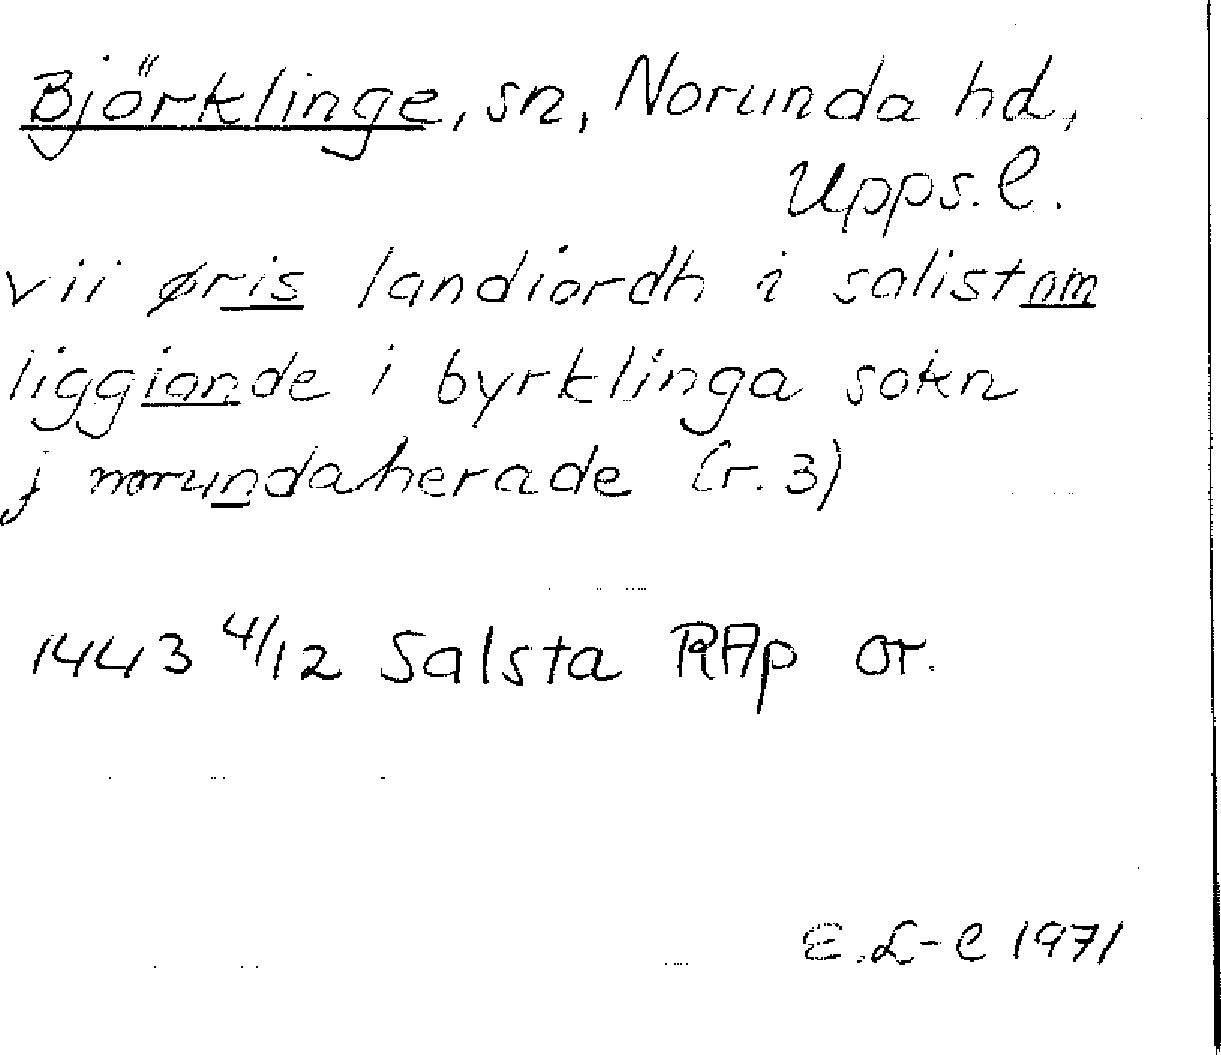 Björklinge, sn, Norunda hd,
Upps. l.
vii øris landiordh i salistom
liggiande i byrklinga sokn
j norundaherade (r. 3)
1443 4/12 Salsta RAp or.
E. L-C 1971